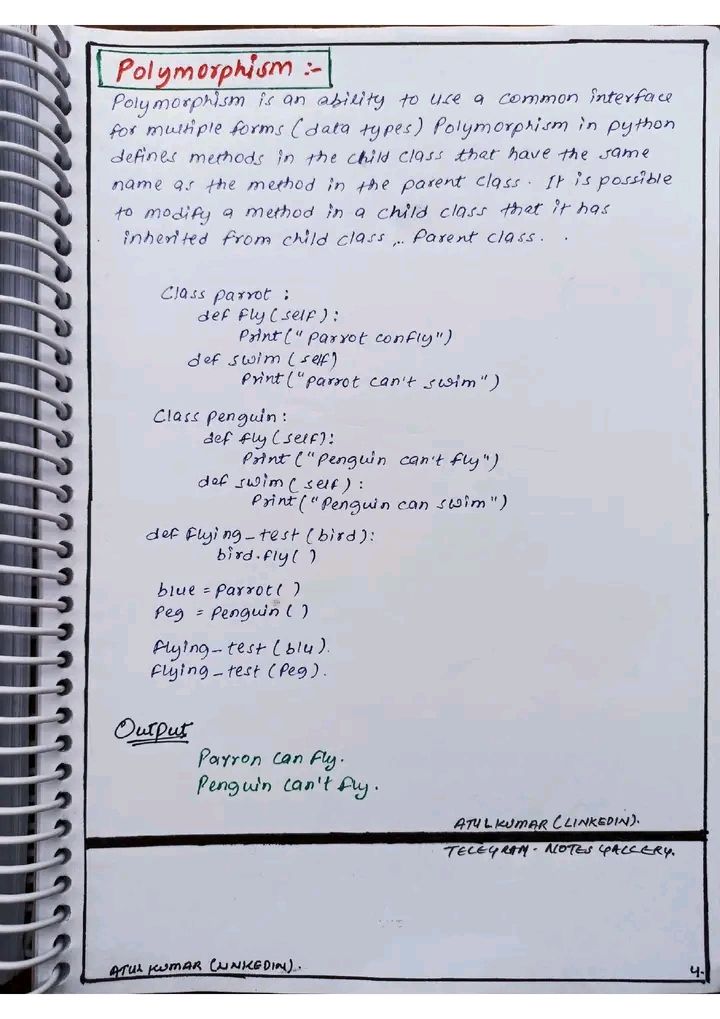 Polymorphism :-
Polymorphism is an ability to use a common interface
for multiple forms (data types) Polymorphism in python
defines methods in the child class that have the same
name as the method in the parent class. It is possible
to modify a method in a child class that it has
inherited from child class ,.. Parent class. .
Class parrot :
def fly (self):
Print (" parrot confly")
def swim (self)
Print ("parrot can't swim")
Class penguin:
def fly (self):
Print ("Penguin can't fly")
def swim (self) :
Print ("Penguin can swim")
def flying_test (bird):
bird.fly( )
blue = parrot( )
Peg = Penguin( )
flying_test (blu).
flying_test (Peg).
Output
Parron can fly.
Penguin can't fly.
ATUL KUMAR (LINKEDIN).
TELEGRAM - NOTES GALLERY.
ATUL KUMAR (LINKEDIN).
4.